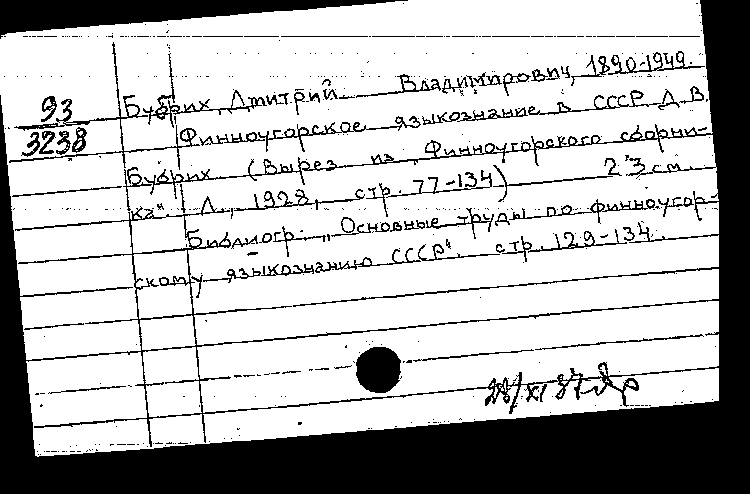 93
3238
Бубрих, Дмитрий Владимирович, 1890-1949.
Финноугорское языкознание в СССР Д. В.
Бубрих (Вырез из „Финноугорского сборни-
ка“ Л., 1928, стр. 77-134) 23 см.
Библиогр.: „Основные труды по финноугор-
скому языкознанию СССР“. стр. 129-134.
28/XI 87